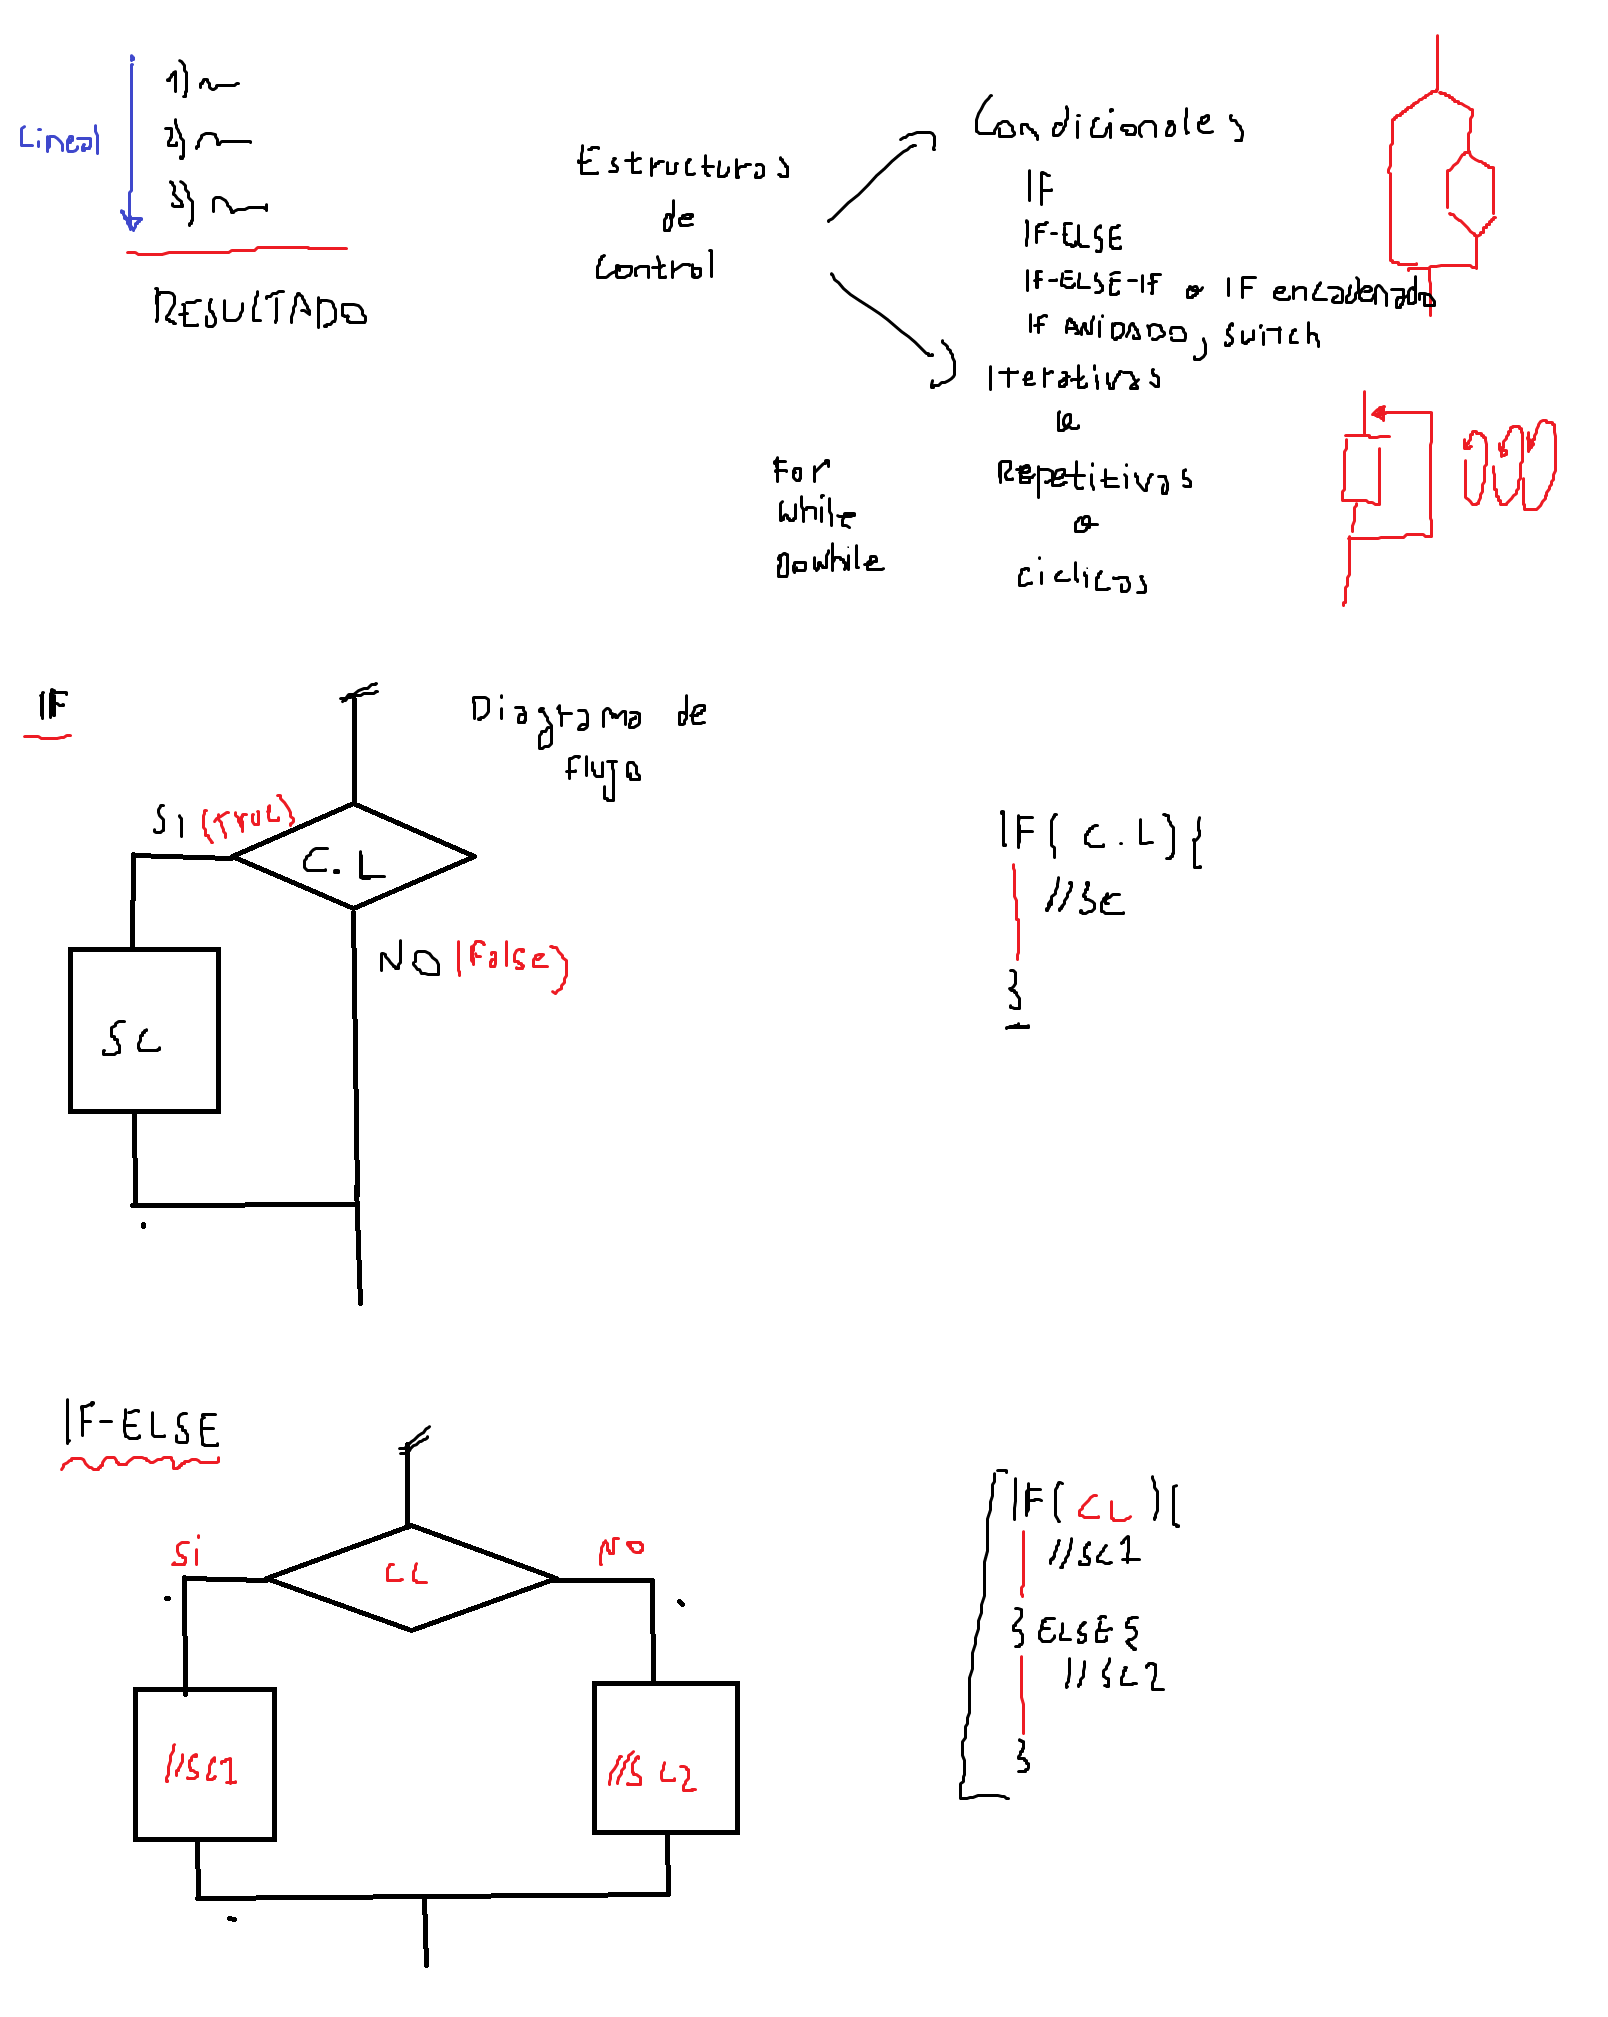 Lineal
1)
2)
3)
RESULTADO
Estructuras
de
control
Condicionales
IF
IF-ELSE
IF-ELSE-IF o IF encadenado
IF ANIDADO, switch
Iterativas
o
Repetitivas
o
ciclicas
For
while
Dowhile
IF
Diagrama de
Flujo
SI (True)
C.L
NO (False)
SC
IF( C.L){
//SC
}
IF-ELSE
Si
CL
NO
//SC1
//SC2
IF( CL ){
//SC1
} ELSE {
//SC2
}